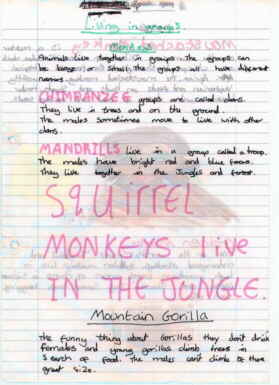 Living in groups.
Animals live together in groups. The groups can
be large or small. The groups all have different
names
CHIMPANZEE groups are called clans.
They live in trees and on the ground.
The males sometimes move to live with other
clans.
MANDRILLS live in a group called a troop.
The males have bright red and blue faces.
They live together in the Jungles and forest.
SQUIRREL
MONKEYS live
IN THE JUNGLE.
Mountain Gorilla
The funny thing about Gorillas they don't drink
Females and young gorillas climb trees in
Search of food. The males can't climb
great size.